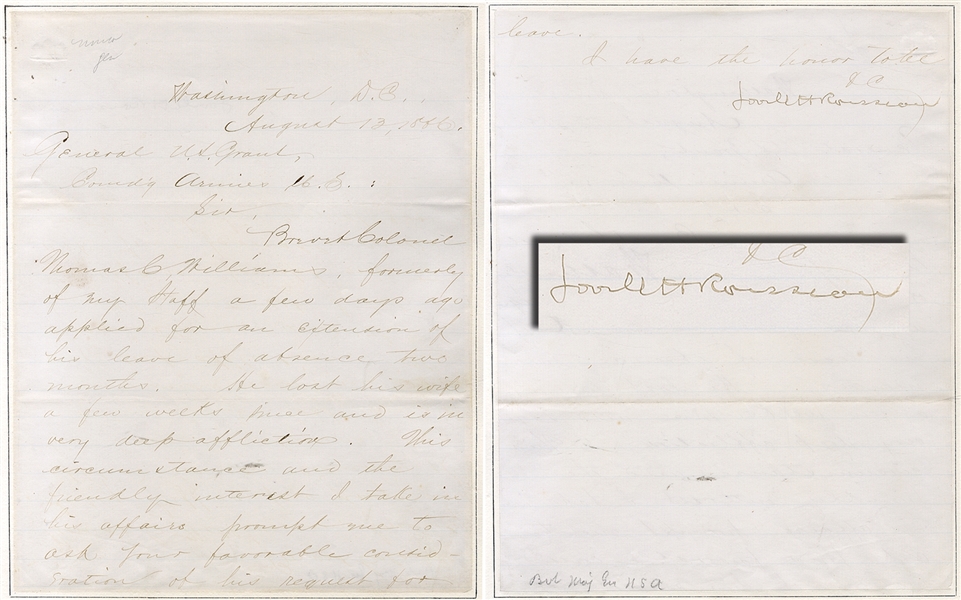 Washington, D.C.,
August 13, 1866.
General U.S. Grant,
Comd'g Armies U.S. :
Sir,
Brevet Colonel
Thomas C. Williams, formerly
of my Staff a few days ago
applied for an extension of
his leave of absence two
months. He lost his wife
a few weeks since and is in
very deep affliction. This
circumstance and the
friendly interest I take in
his affairs prompt me to
ask your favorable consid-
eration of his request for
leave.
I have the honor to be
&C
Lovell H Rousseau
&C
Lovell H Rousseau
Bvt Maj Gen USA